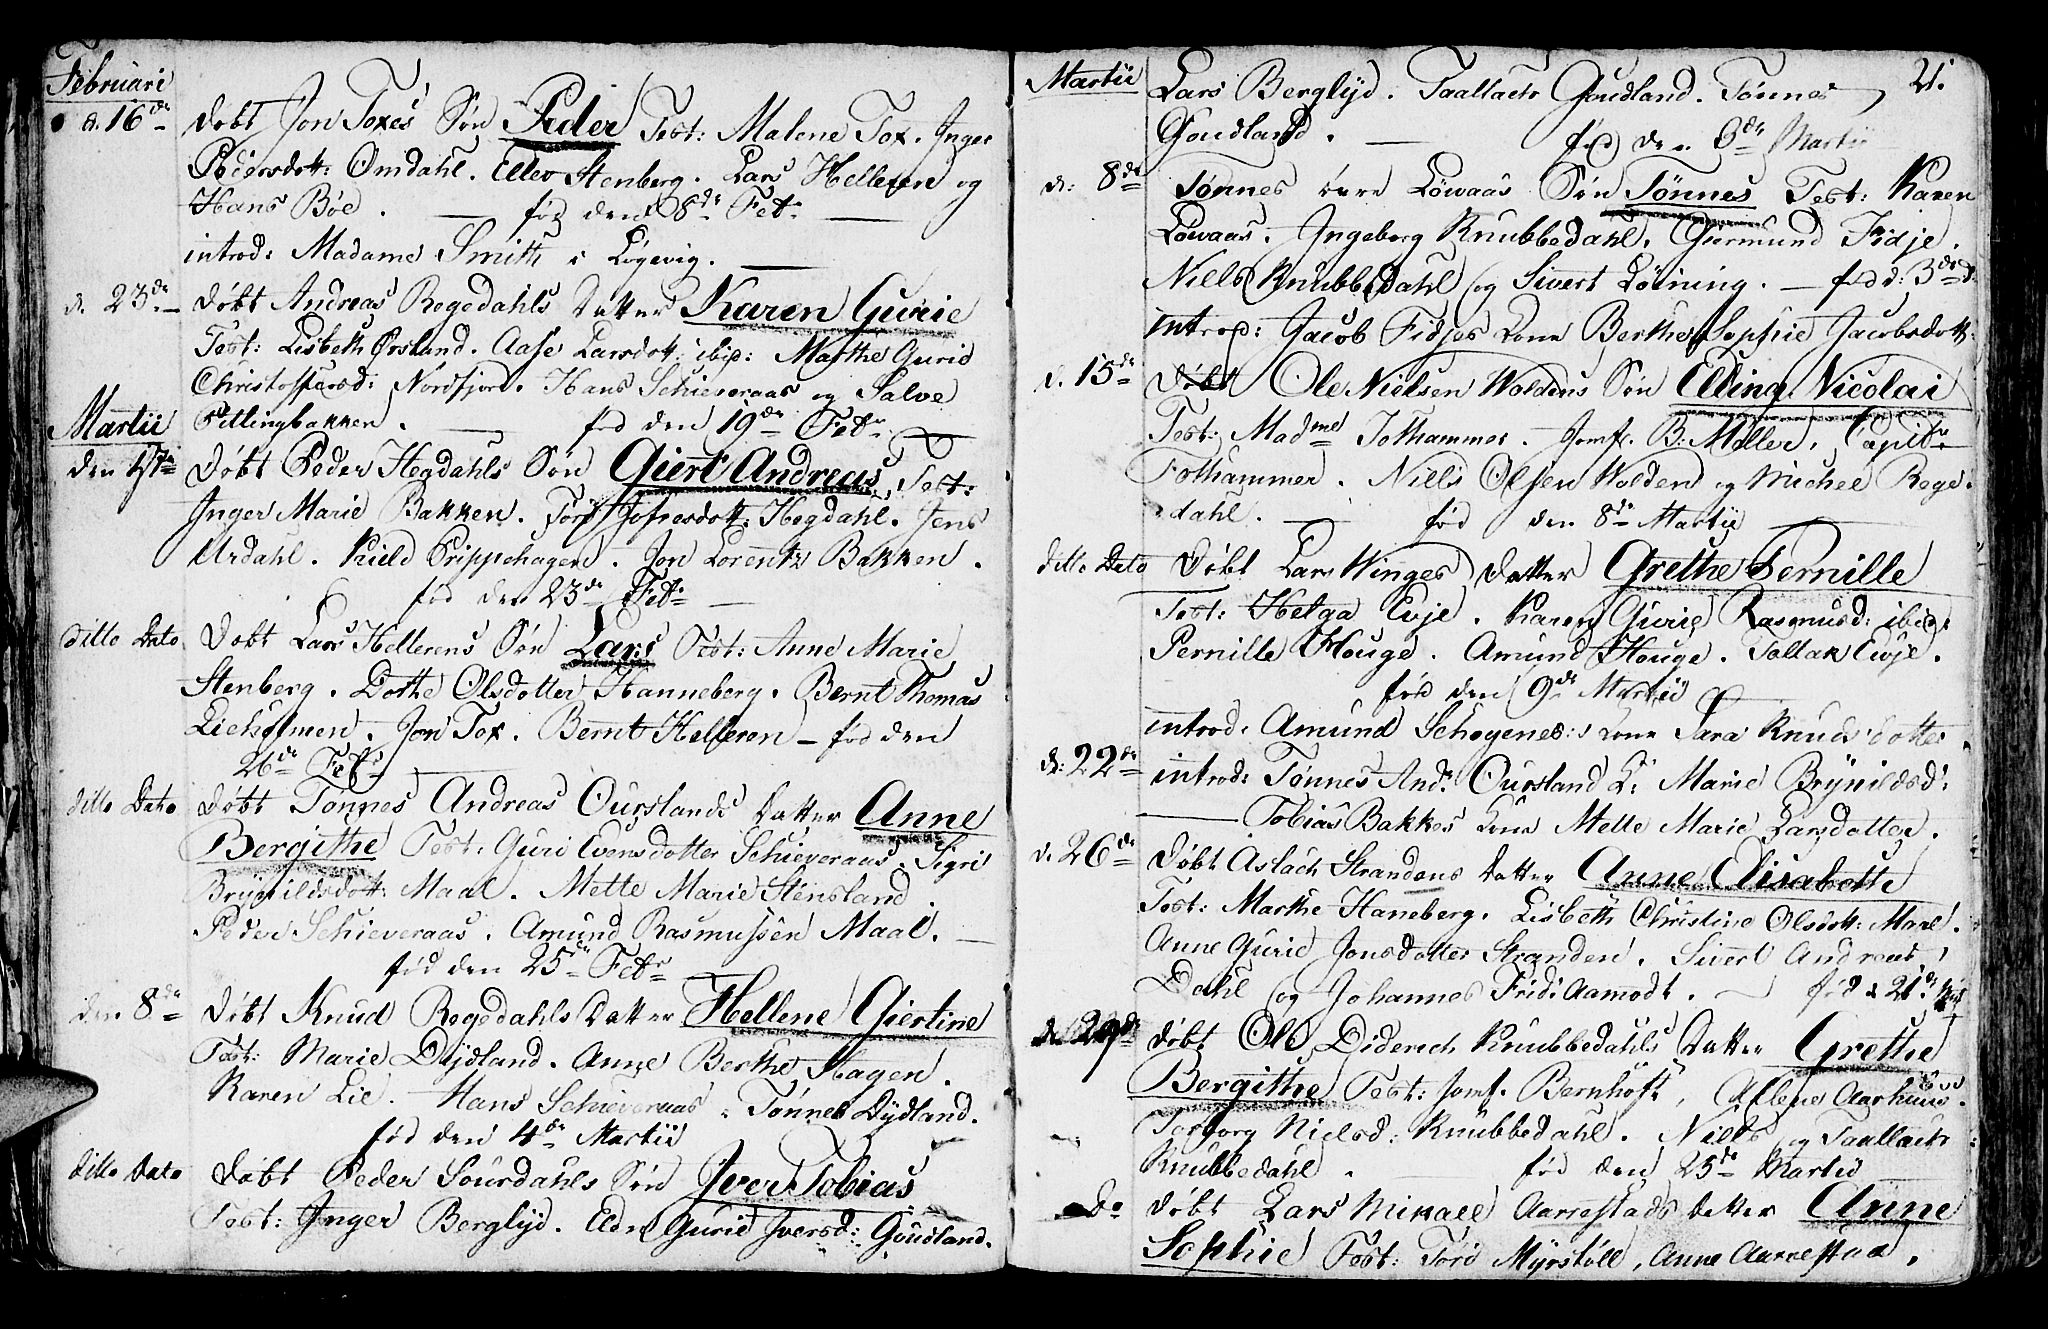 Februari
d. 16de døbt Jon Toxes Søn Peder Test: Malene Tox. Inger
Pedersdott: Omdahl. Ellev Stenberg. Lars Helleren og
Hans Böe. — fød den 8de Febr —
introd: Madame Smith i Løgevig. —
d. 23de — døbt Andreas Regedahls Datter Karen Gurie
Test: Lisbeth Ørsland. Aase Larsdott: ibid: Marthe Gurie
Christoffersd: Nordfjor. Hans Schieveraas og Salve
Martii
Pittingbakken. — fød den 19de Febr —
den 1ste Døbt Peder Hegdahls Søn Giert Andreas, Test:
Inger Marie Bakken. Jofresdott: Hegdahl. Jens
Urdahl. Kield Trippehagen. Jon Lorentz Bakken.
fød den 23de Febr —
ditto Dato Døbt Lars Hellerens Søn Lars Test: Anne Marie
Stenberg. Dothe Olsdotter Hanneberg. Bernt Thomas
Lieholmen. Jon Tox. Bernt Helleren — fød den
26de Febr —
ditto Dato døbt Tønnes Andreas Ourslands Datter Anne
Bergithe Test: Guri Evensdotter Schieveraas. Sigri
Brynildsdott: Maal. Mette Marie Stensland.
Peder Schieveraas. Amund Rasmussen Maal. —
fød den 25de Febr
den 8de døbt Knud Regedahls Datter Hellene Giertine
Test: Marie Dydland. Anne Berthe Hagen.
Karen Lie. Hans Schieveraas. Tønnes Dydland.
fød den 4de Martii
ditto Dato Døbt Peder Sourdahls Søn Iver Tobias
Test: Inger Berglyd. Elen Gurie Iversd: Goudland.
Martii 21.
Lars Berglyd. Taallach Goudland. Tønnes
Goudland. — fød den 6de Martii
d: 8de Tønnes övre Löwaas Søn Tønnes Test: Karen
Löwaas. Ingeborg Knubbedahl. Giermund Fidje.
Niels Knubbedahl og Sivert Løining. — fød d: 3de d.
introd: Jacob Fidjes Kone Berthe Sophie Jacobsdott:
d. 15de Døbt Ole Nielsen Woldens Søn Elling Nicolai
Test: Madme Folhammer. Jomf. B: Møller. Capit:
Folhammer. Niels Olsen Wolden og Michel Rege-
dahl. — fød den 8de Martii —
ditto Dato Døbt Lars Winges Datter Grethe Pernille
Test: Helga Evje. Karen Gurie Rasmusd: ibid:
Pernille Houge. Amund Houge. Tallak Evje.
fød den 9de Martii
introd: Amund Schoyenes Kone Sara Knudsdotter.
d: 22de introd: Tønnes And: Oursland K: Marie Brynildsd:
— Tobias Bakkes Kone Mette Marie Larsdotter.
d. 26de Døbt Aslach Strandens Datter Anne Elisabeth
Test: Marthe Haneberg. Lisbeth Christine Olsdott: Maal.
Anne Gurie Jonsdotter Stranden. Sivert Andreas
Dahl og Johannes Frid: Aamodt. — fød d 21de
d. 29de døbt Ole Diderich Knubbedahls Datter Grethe
Bergithe Test: Jomf. Bernhoft, Aarhuus.
Torborg Nielsd: Knubbedahl. Niels og Taallach
Knubbedahl. — fød den 25de Martii
Do døbt Lars Mikael Aarrestads Datter Anne
Sophie Test: Toro Myrstöll, Anne Aarrestad.